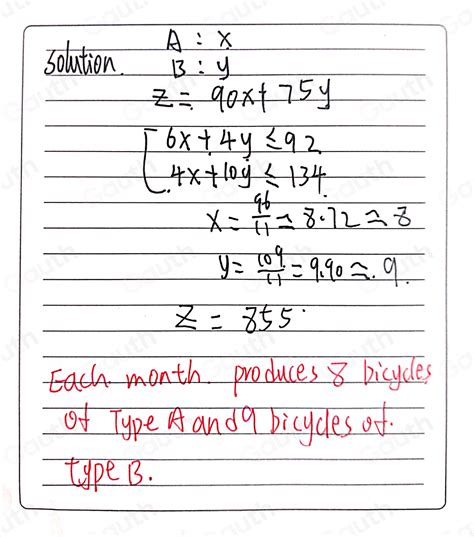 A : x
Solution. B : y
z = 90x+75y
6x+4y ≤92
4x+10y ≤ 134.
x = 96/11 ≃ 8.72 ≃ 8
y = 109/11 = 9.90 ≃. 9.
z = 855.
Each month. produces 8 bicycles
of Type A and 9 bicycles of.
type B.